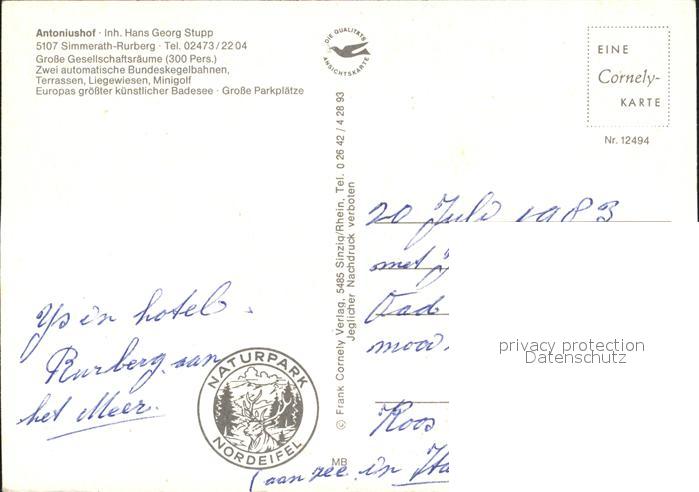 Antoniushof · Inh. Hans Georg Stupp
5107 Simmerath-Rurberg · Tel. 02473/2204
Große Gesellschaftsräume (300 Pers.)
Zwei automatische Bundeskegelbahnen,
Terrassen, Liegewiesen, Minigolf
Europas größter künstlicher Badesee · Große Parkplätze
DIE QUALITÄTS
ANSICHTSKARTE
EINE
Cornely-
KARTE
Nr. 12494
© Frank Cornely Verlag, 5485 Sinzig/Rhein, Tel. 0 26 42 / 4 28 93
Jeglicher Nachdruck verboten
20 Juli 1983
met
mooi
Roos
(aan zee in
in hotel
Rurberg aan
het Meer.
NATURPARK
NORDEIFEL
MB
privacy protection
Datenschutz